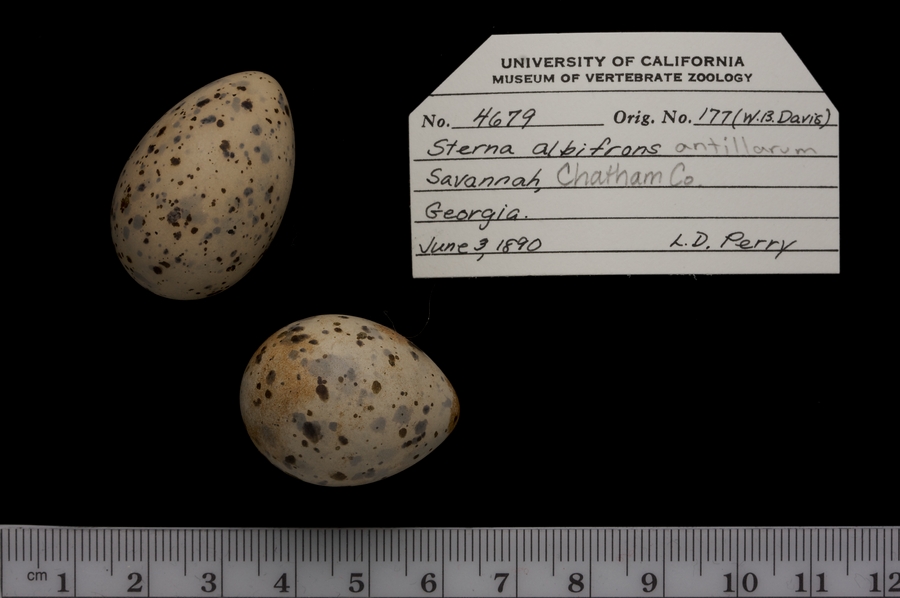 UNIVERSITY OF CALIFORNIA
MUSEUM OF VERTEBRATE ZOOLOGY
No. 4679 Orig. No. 177 (W.B. Davis)
Sterna albifrons antillarum
Savannah, Chatham Co.
Georgia.
June 3, 1890 L.D. Perry
cm 1 2 3 4 5 6 7 8 9 10 11 12